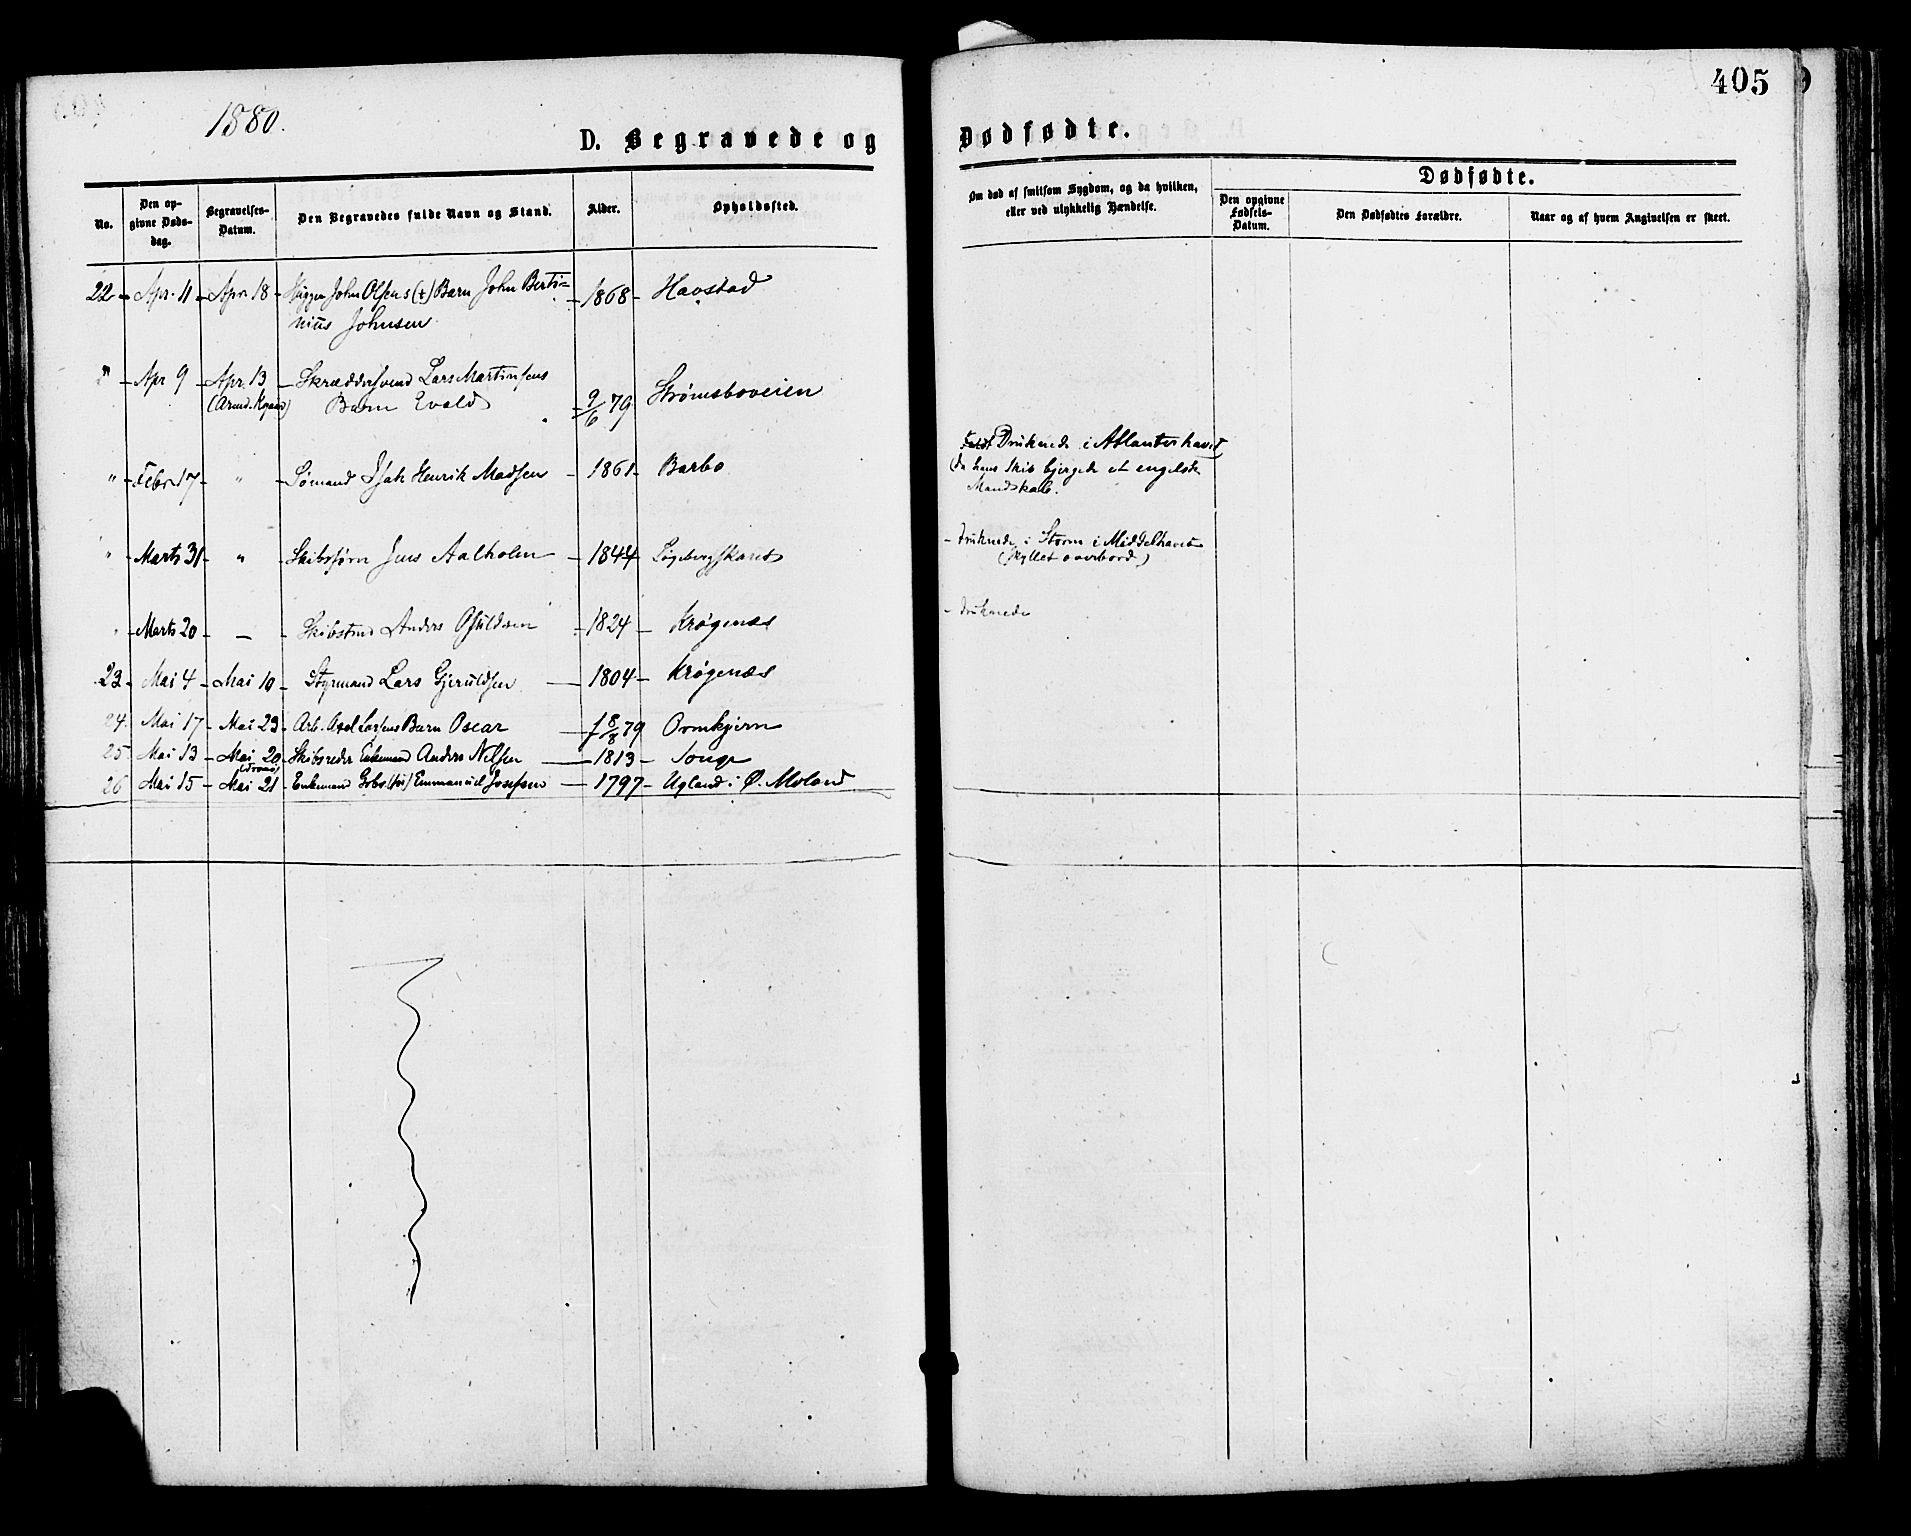 405
1880.
D. Begravede og Dødfødte.
No.
Den op-
givne Døds-
dag.
Begravelses-
Datum.
Den Begravedes fulde Navn og Stand.
Alder.
Opholdssted.
Om død af smitsom Sygdom, og da hvilken,
eller ved ulykkelig Hændelse.
Dødfødte.
Den opgivne
Fødsels-
Datum.
Den Dødfødtes Forældre.
Naar og af hvem Angivelsen er skeet.
22 - Apr. 11 - Apr. 18 - John Olsens (+) Barn John Berti= - 1868 - Havstad
nius Johnsen
" - Apr 9 - Apr. 13 - Skræddersvend Lars Martinsens
(Arend. Kgaard) Barn Evald - 9/6 79 Strømsboveien
" - Febr 17 - " - Sømand Isak Henrik Madsen - 1861 - Barbo
Druknede i Atlanterhavet
(da hans Skib bjergede et engelsk
Mandskab.
" - Marts 31 - " - Skibsfører Jens Aalholm - 1844
- druknede i Storm i Middelhavet
(skyllet overbord)
" - Marts 20 - - Anders Osuldsen - 1824 - Krøgenæs
- druknede
23 - Mai 4 - Mai 10 - Styrmand Lars Gjeruldsen - 1804 - Krøgenæs
24. Mai 17 - Mai 23 - Arb. Axel Larsens Barn Oscar - f 8/8 79 Ormkjern
25 Mai 13 - Mai 20 - Skibsreder Enkemand Anders Nilsen - 1813 - Songe
26 Mai 15 - Mai 21 - Enkemand Emmanuel Josefsen - 1797 - Ugland i Ø. Moland